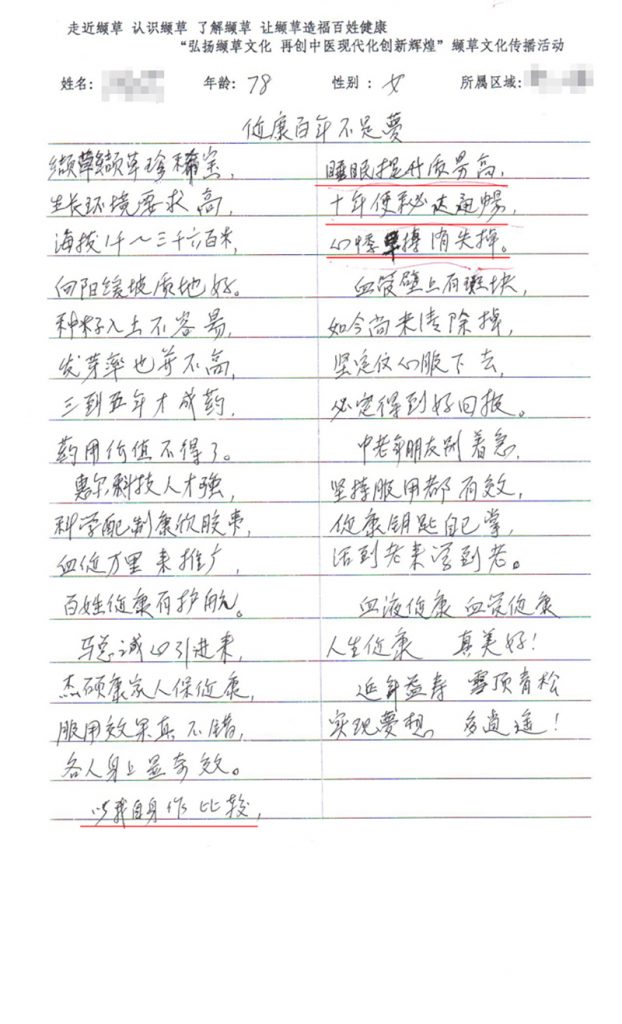 走近缬草 认识缬草 了解缬草 让缬草造福百姓健康
“弘扬缬草文化 再创中医现代化创新辉煌”缬草文化传播活动
姓名: 年龄: 78 性别: 女 所属区域:
促康百年不是夢
缬草缬草珍稀宝,
生长环境要求高,
海拔1千～三千六百米,
向阳缓坡质地好。
种籽入土不容易,
发芽率也并不高,
三到五年才成药,
药用价值不得了。
惠尔科技人才强,
科学配制康欣胶囊,
血促万里来推广,
百姓促康有护航。
马总诚心引进来,
杰硕康众人保促康,
服用效果真不错,
各人身上显奇效。
以我自身作比较,
睡眠提升质量高,
十年便秘达通畅,
心悸早搏消失掉。
血管壁上有斑块,
如今尚未清除掉,
坚定信心服下去,
必定得到好回报。
中老年朋友别着急,
坚持服用都有效,
促康钥匙自己掌,
活到老来学到老。
血液促康 血管促康
人生促康 真美好!
延年益寿 雪顶青松
实现夢想 多逍遥!